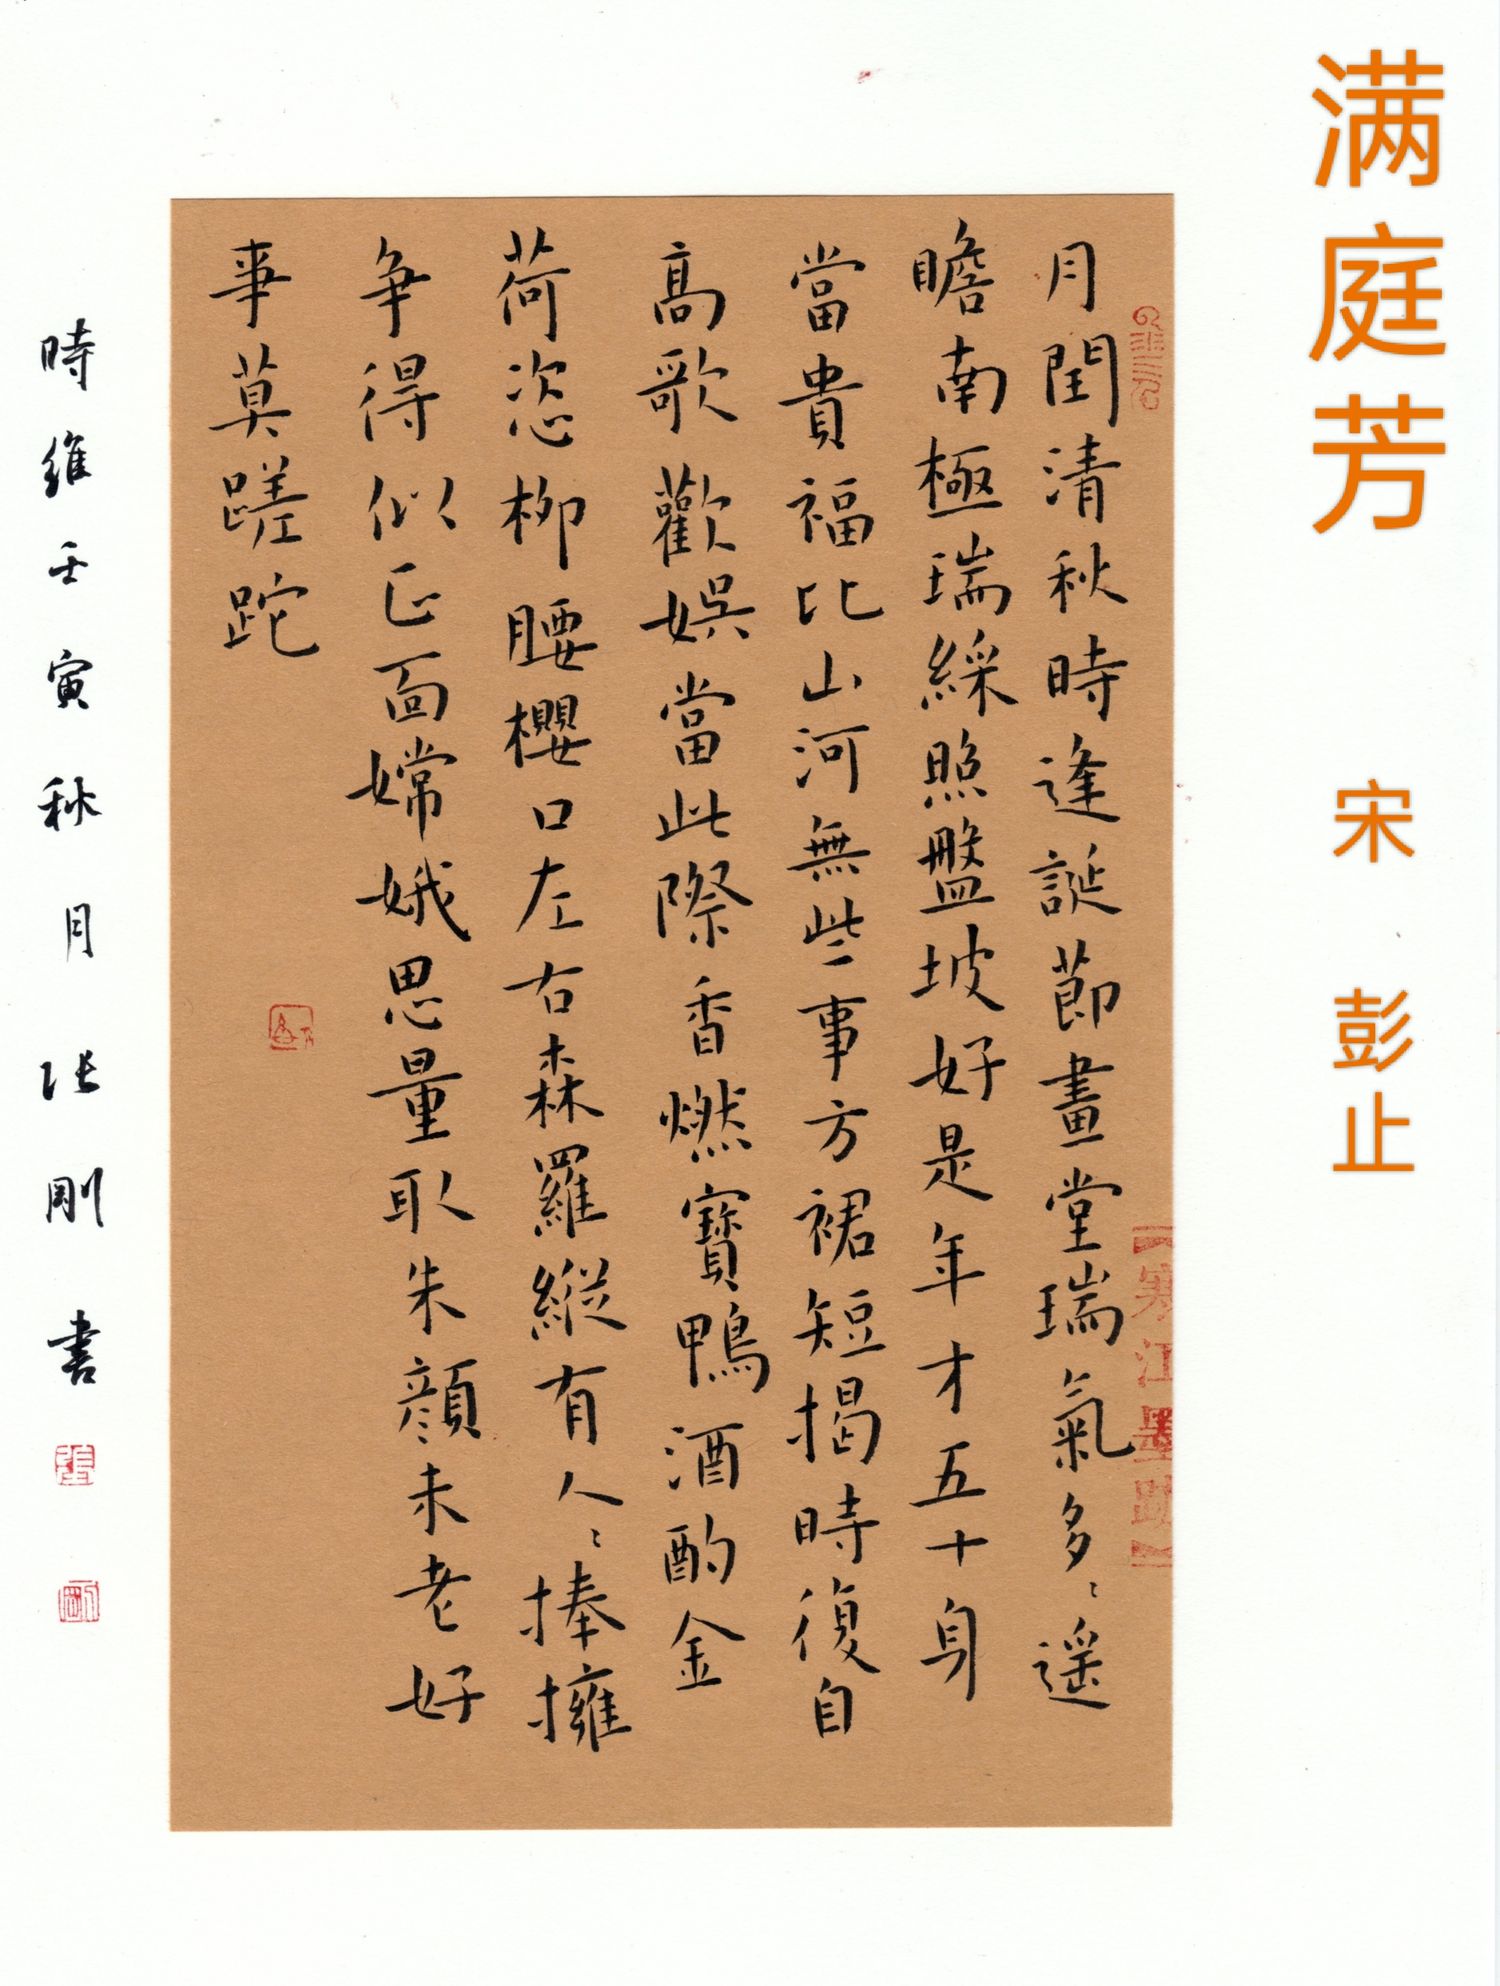 满庭芳 宋 彭止
月閏清秋時逢誕節畫堂瑞氣多〻遥
瞻南極瑞綵照盤坡好是年才五十身
當貴福比山河無些事方裙短揭時復自
高歌歡娯當此際香燃寶鴨酒酌金
荷恣柳腰櫻口左右森羅縱有人〻捧擁
争得似正面嫦娥思量取朱顔未老好
事莫蹉跎
時維壬寅秋月 张剛 書
【寒江墨跡】